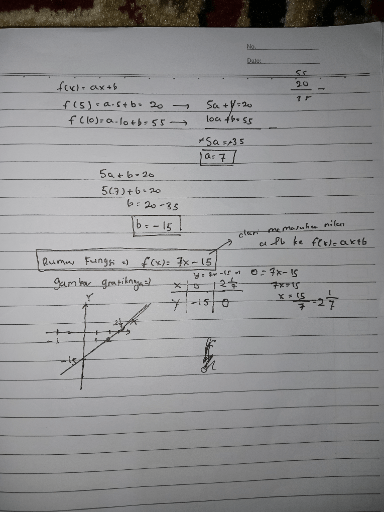 No.
Date:
55
20 -
35
f(x) = ax+b
f(5) = a.5+b = 20 → 5a+b=20
f(10) = a.10+b = 55 → 10a+b=55
-5a = -35
a = 7
5a+b=20
5(7)+b=20
b = 20-35
b = -15
dari memasukan nilai
a & b ke f(x)=ax+b
Rumus Fungsi => f(x) = 7x-15
gambar grafiknya =>
x 0 2 1/7
y -15 0
0 = 7x-15
7x=15
x = 15/7 = 2 1/7
Y
-1
-15